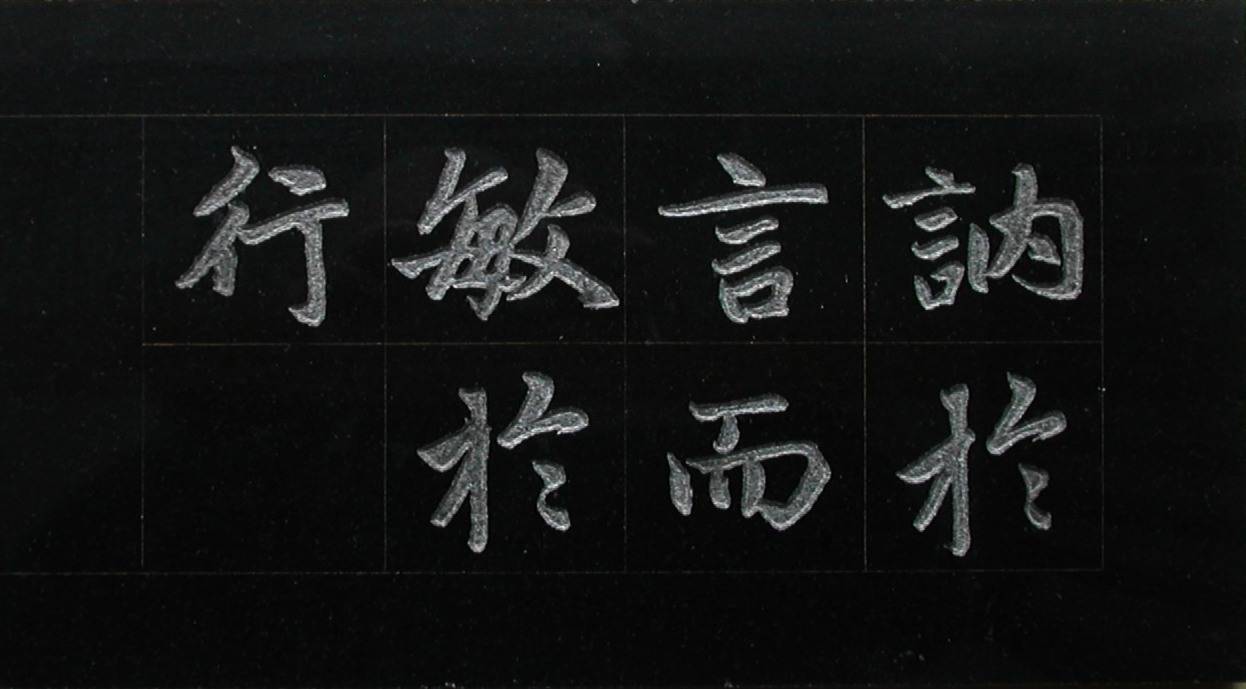 訥於
言而
敏於
行